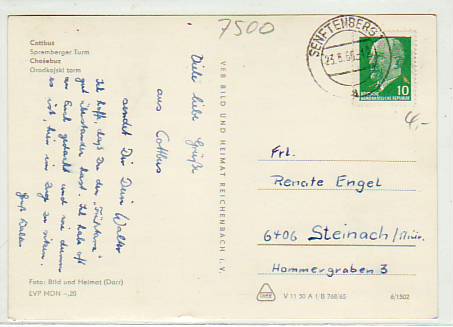 7500
Cottbus
Spremberger Turm
Chośebuz
Grodkojski torm
Viele liebe Grüße
aus Cottbus
sendet Dir Dein Walter
Ich hoffe, dass Du den
gut überstanden hast. Ich habe oft
an Euch gedacht und wie dumm
es ist, hier im Zug zu sitzen.
Gruß Walter
Foto: Bild und Heimat (Darr)
EVP MDN -.20
VEB BILD UND HEIMAT REICHENBACH i. V.
SENFTENBERG
10
DEUTSCHE DEMOKRATISCHE REPUBLIK
4,-
Frl.
Renate Engel
6406 Steinach/Thür.
Hammergraben 3
V 11 50 A 1/B 768/65
6/1502